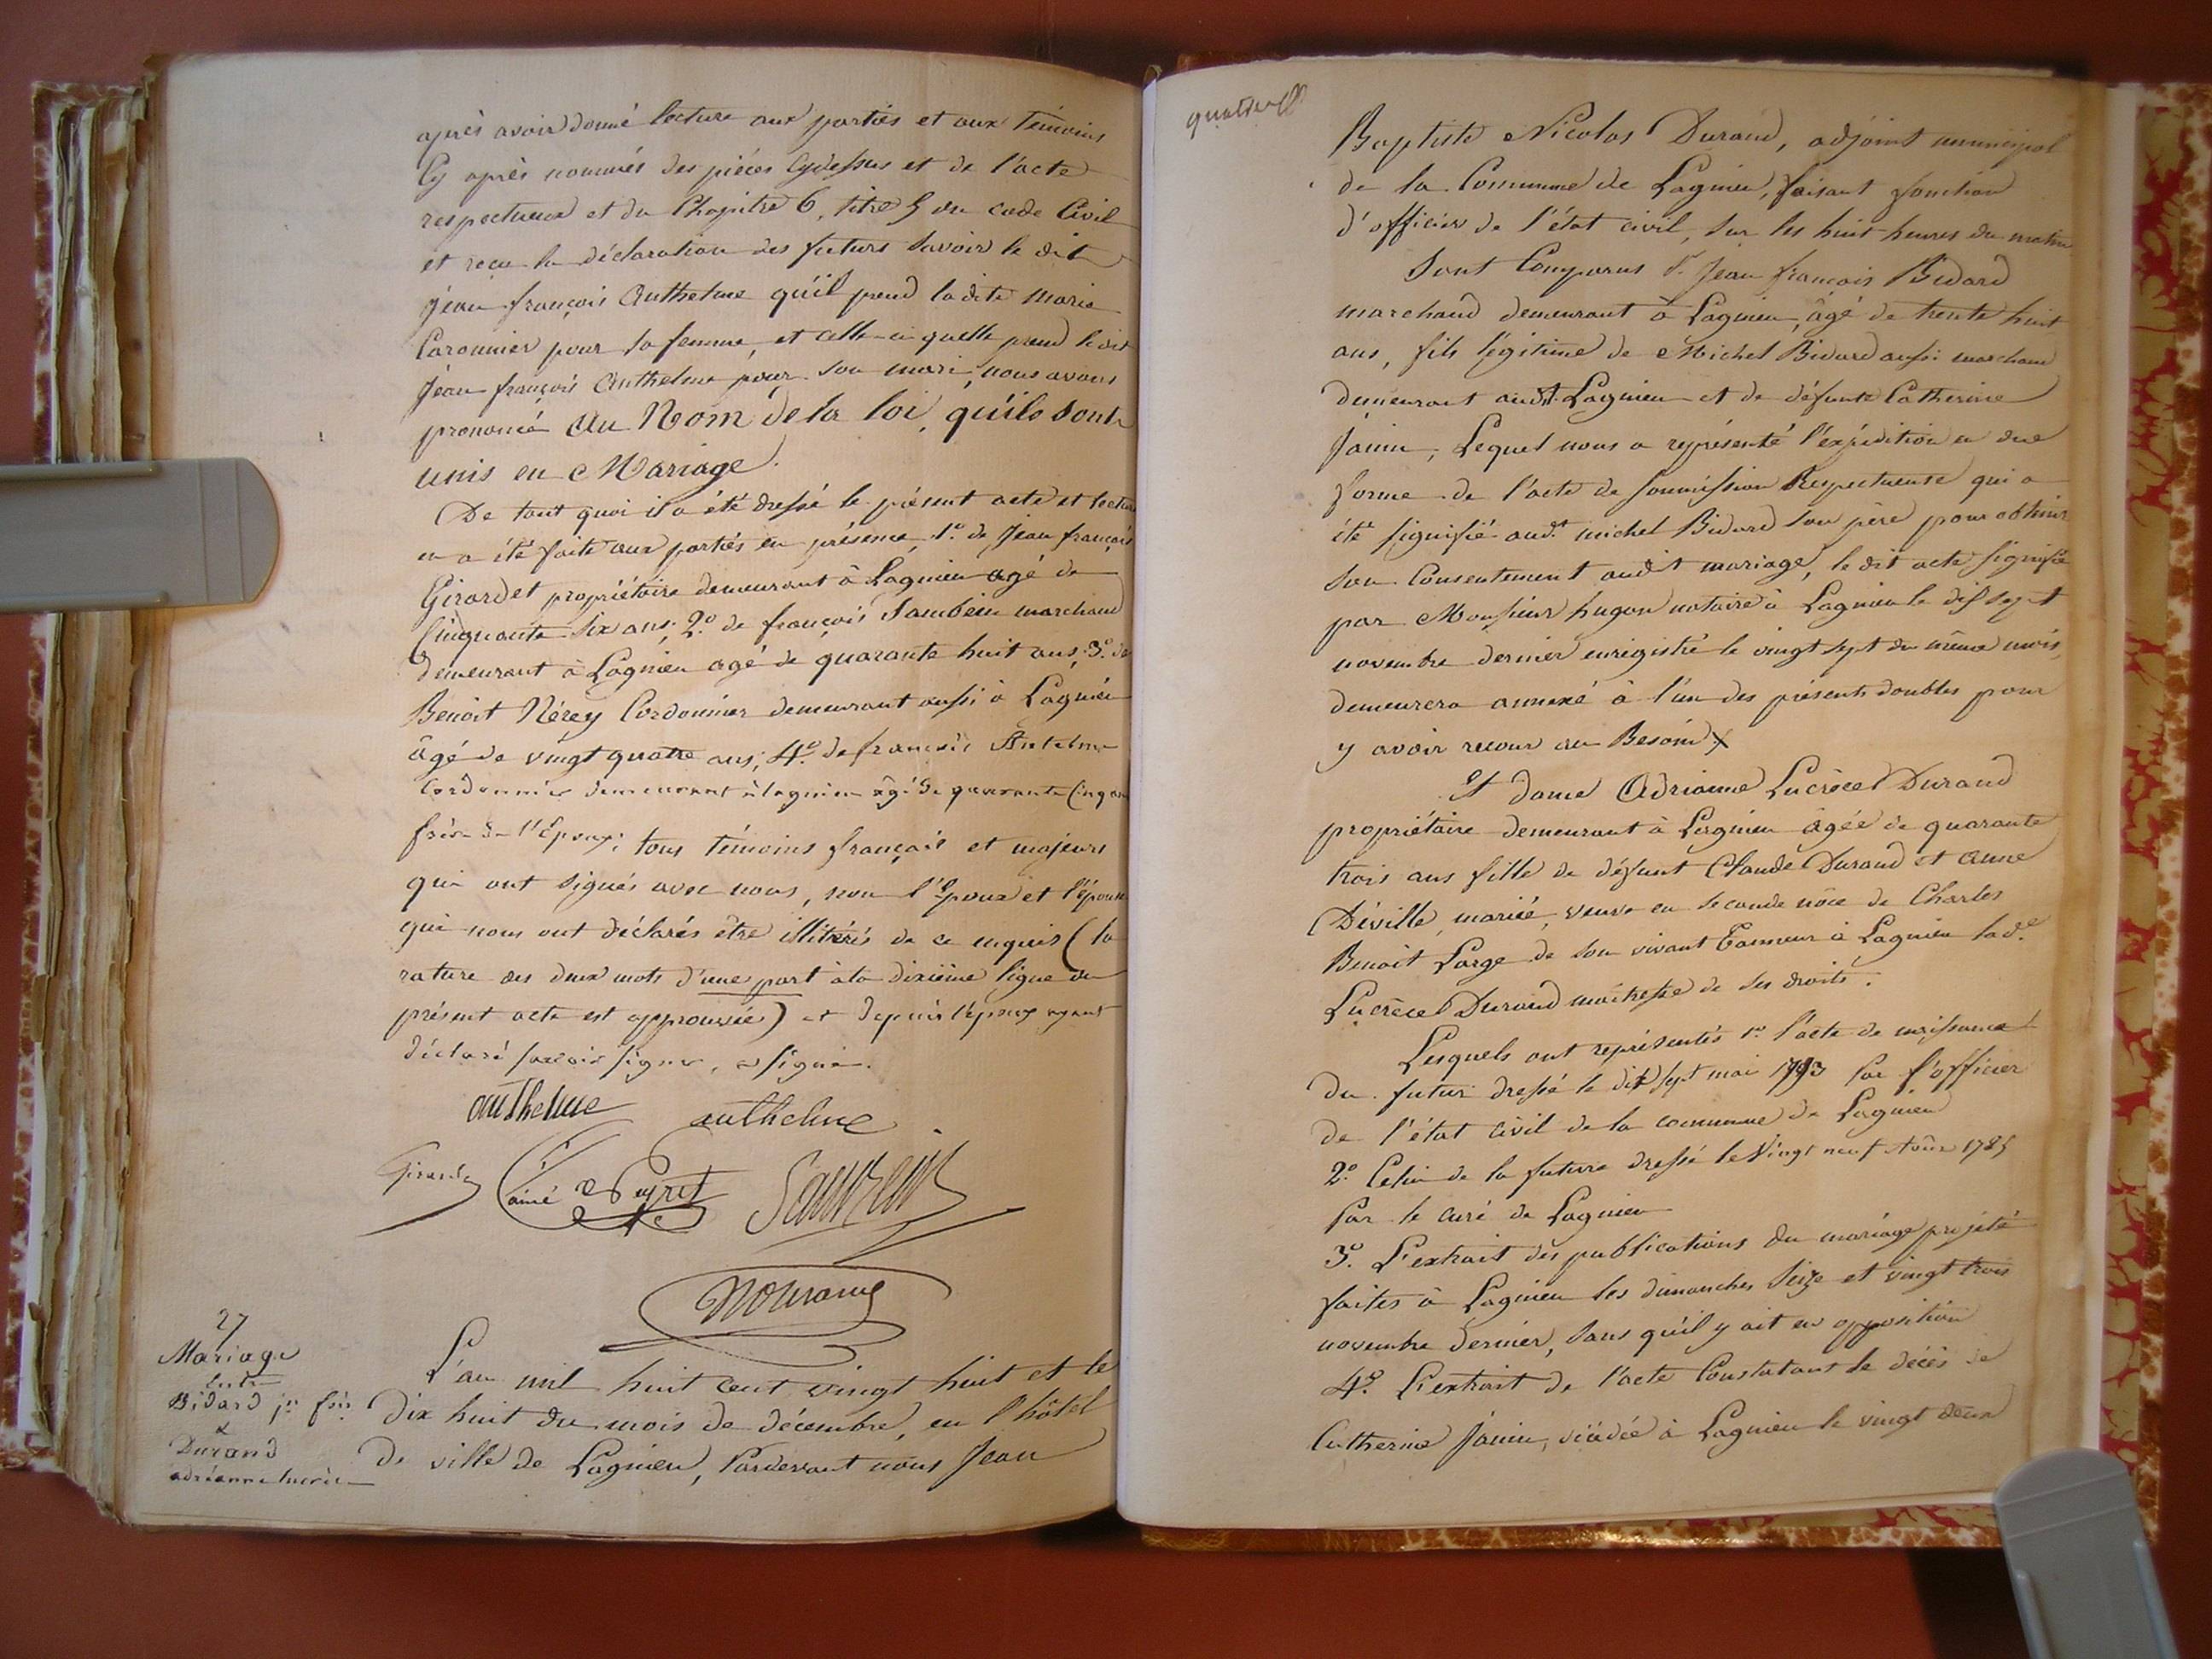 après avoir donné lecture aux parties et aux témoins
Cy après nommés des pièces Cydessus et de l'acte
respectueux et du Chapitre 6, titre 5 du code Civil
et reçu la déclaration des futurs savoir le dit
jean françois Anthelme qu'il prend la dite Marie
Caronnier pour sa femme, et celle-ci quelle prend le dit
Jean françois Anthelme pour son mari, nous avons
prononcé Au Nom de la loi, qu'ils sont
unis en Mariage.
De tout quoi il a été dressé le présent acte et lecture
en a été faite aux parties en présence, 1.º de Jean françois
Girardet propriétaire demeurant à Lagnieu agé de
Cinquante six ans; 2.º de françois Sambein marchand
demeurant à Lagnieu agé de quarante huit ans; 3.º de
Benoit Nérey Cordonnier demeurant aussi à Lagnieu
âgé de vingt quatre ans; 4.º de françois Antelme
Cordonnier demeurant à lagnieu âgé de quarante Cinq ans
frère de l'Epoux; tous témoins français et majeurs
qui ont signés avec nous, non l'Epoux et l'épouse
qui nous ont déclarés être illitérés de ce enquis (la
rature des deux mots d'une part à la dixième ligne du
présent acte est approuvée) et depuis l'époux ayant
déclaré savoir signer, a signé.
anthelme anthelme
Girardet ainé
27
Mariage
Entre
Bidard jn fois
&
Durand
adrianne lucrèce
L'an mil huit cent vingt huit et le
Dix huit du mois de décembre, en l'hôtel
De ville de Lagnieu, Pardevant nous Jean
Baptiste Nicolas Durand, adjoint municipal
de la Commune de Lagnieu, faisant fonction
d'officier de l'état civil, sur les huit heures du matin
Sont Comparus Sr Jean françois Bidard
marchand demeurant à Lagnieu, âgé de trente huit
ans, fils légitime de Michel Bidard aussi marchand
demeurant audit Lagnieu et de défunte Catherine
Janin, Lequel nous a représenté l'expédition en due
forme de l'acte de soumission Respectueuse qui a
été signifié aud.t michel Bidard son père pour obtenir
son Consentement audit mariage, le dit acte signifié
par Monsieur hugon notaire à Lagnieu le dix sept
novembre dernier enrégistré le vingt sept du même mois,
demeurera annexé à l'un des présents doubles pour
y avoir recour au Besoin
Et dame Adrianne Lucrèce Durand
propriétaire demeurant à Lagnieu âgée de quarante
trois ans fille de défunt Claude Durand et Anne
Déville, mariée, veuve en seconde nôce de Charles
Benoit Large de son vivant Tanneur à Lagnieu lad.e
Lucrèce Durand maîtresse de ses droits.
Lesquels ont représentés 1.º l'acte de naissance
du futur dressé le dix sept mai 1793 Par l'officier
de l'état civil de la commune de Lagnieu
2.º Celui de la future dressé le Vingt neuf Août 1785
Par le curé de Lagnieu
3.º L'extrait des publications du mariage projeté
faites à Lagnieu les dimanches Seize et vingt trois
novembre dernier, sans qu'il y ait eu opposition
4.º L'extrait de l'acte Constatant le décès de
Catherine Janin, décédée à Lagnieu le vingt deux